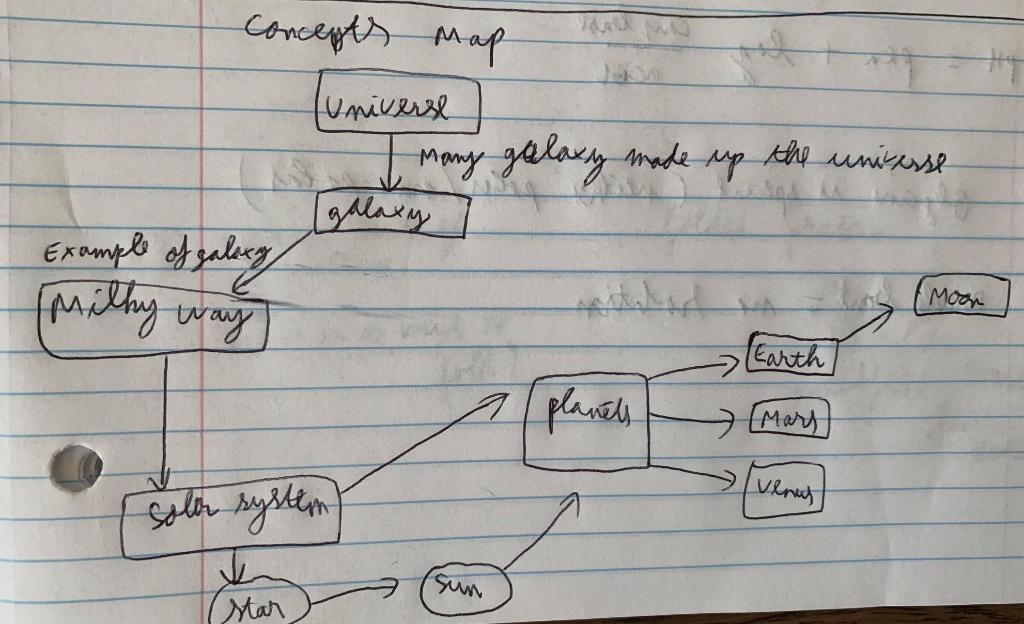 Concepts Map
Universe
Many galaxy made up the universe
galaxy
Example of galaxy
Milky way
Moon
Earth
planets
Mars
Venus
Solar system
Sun
Star